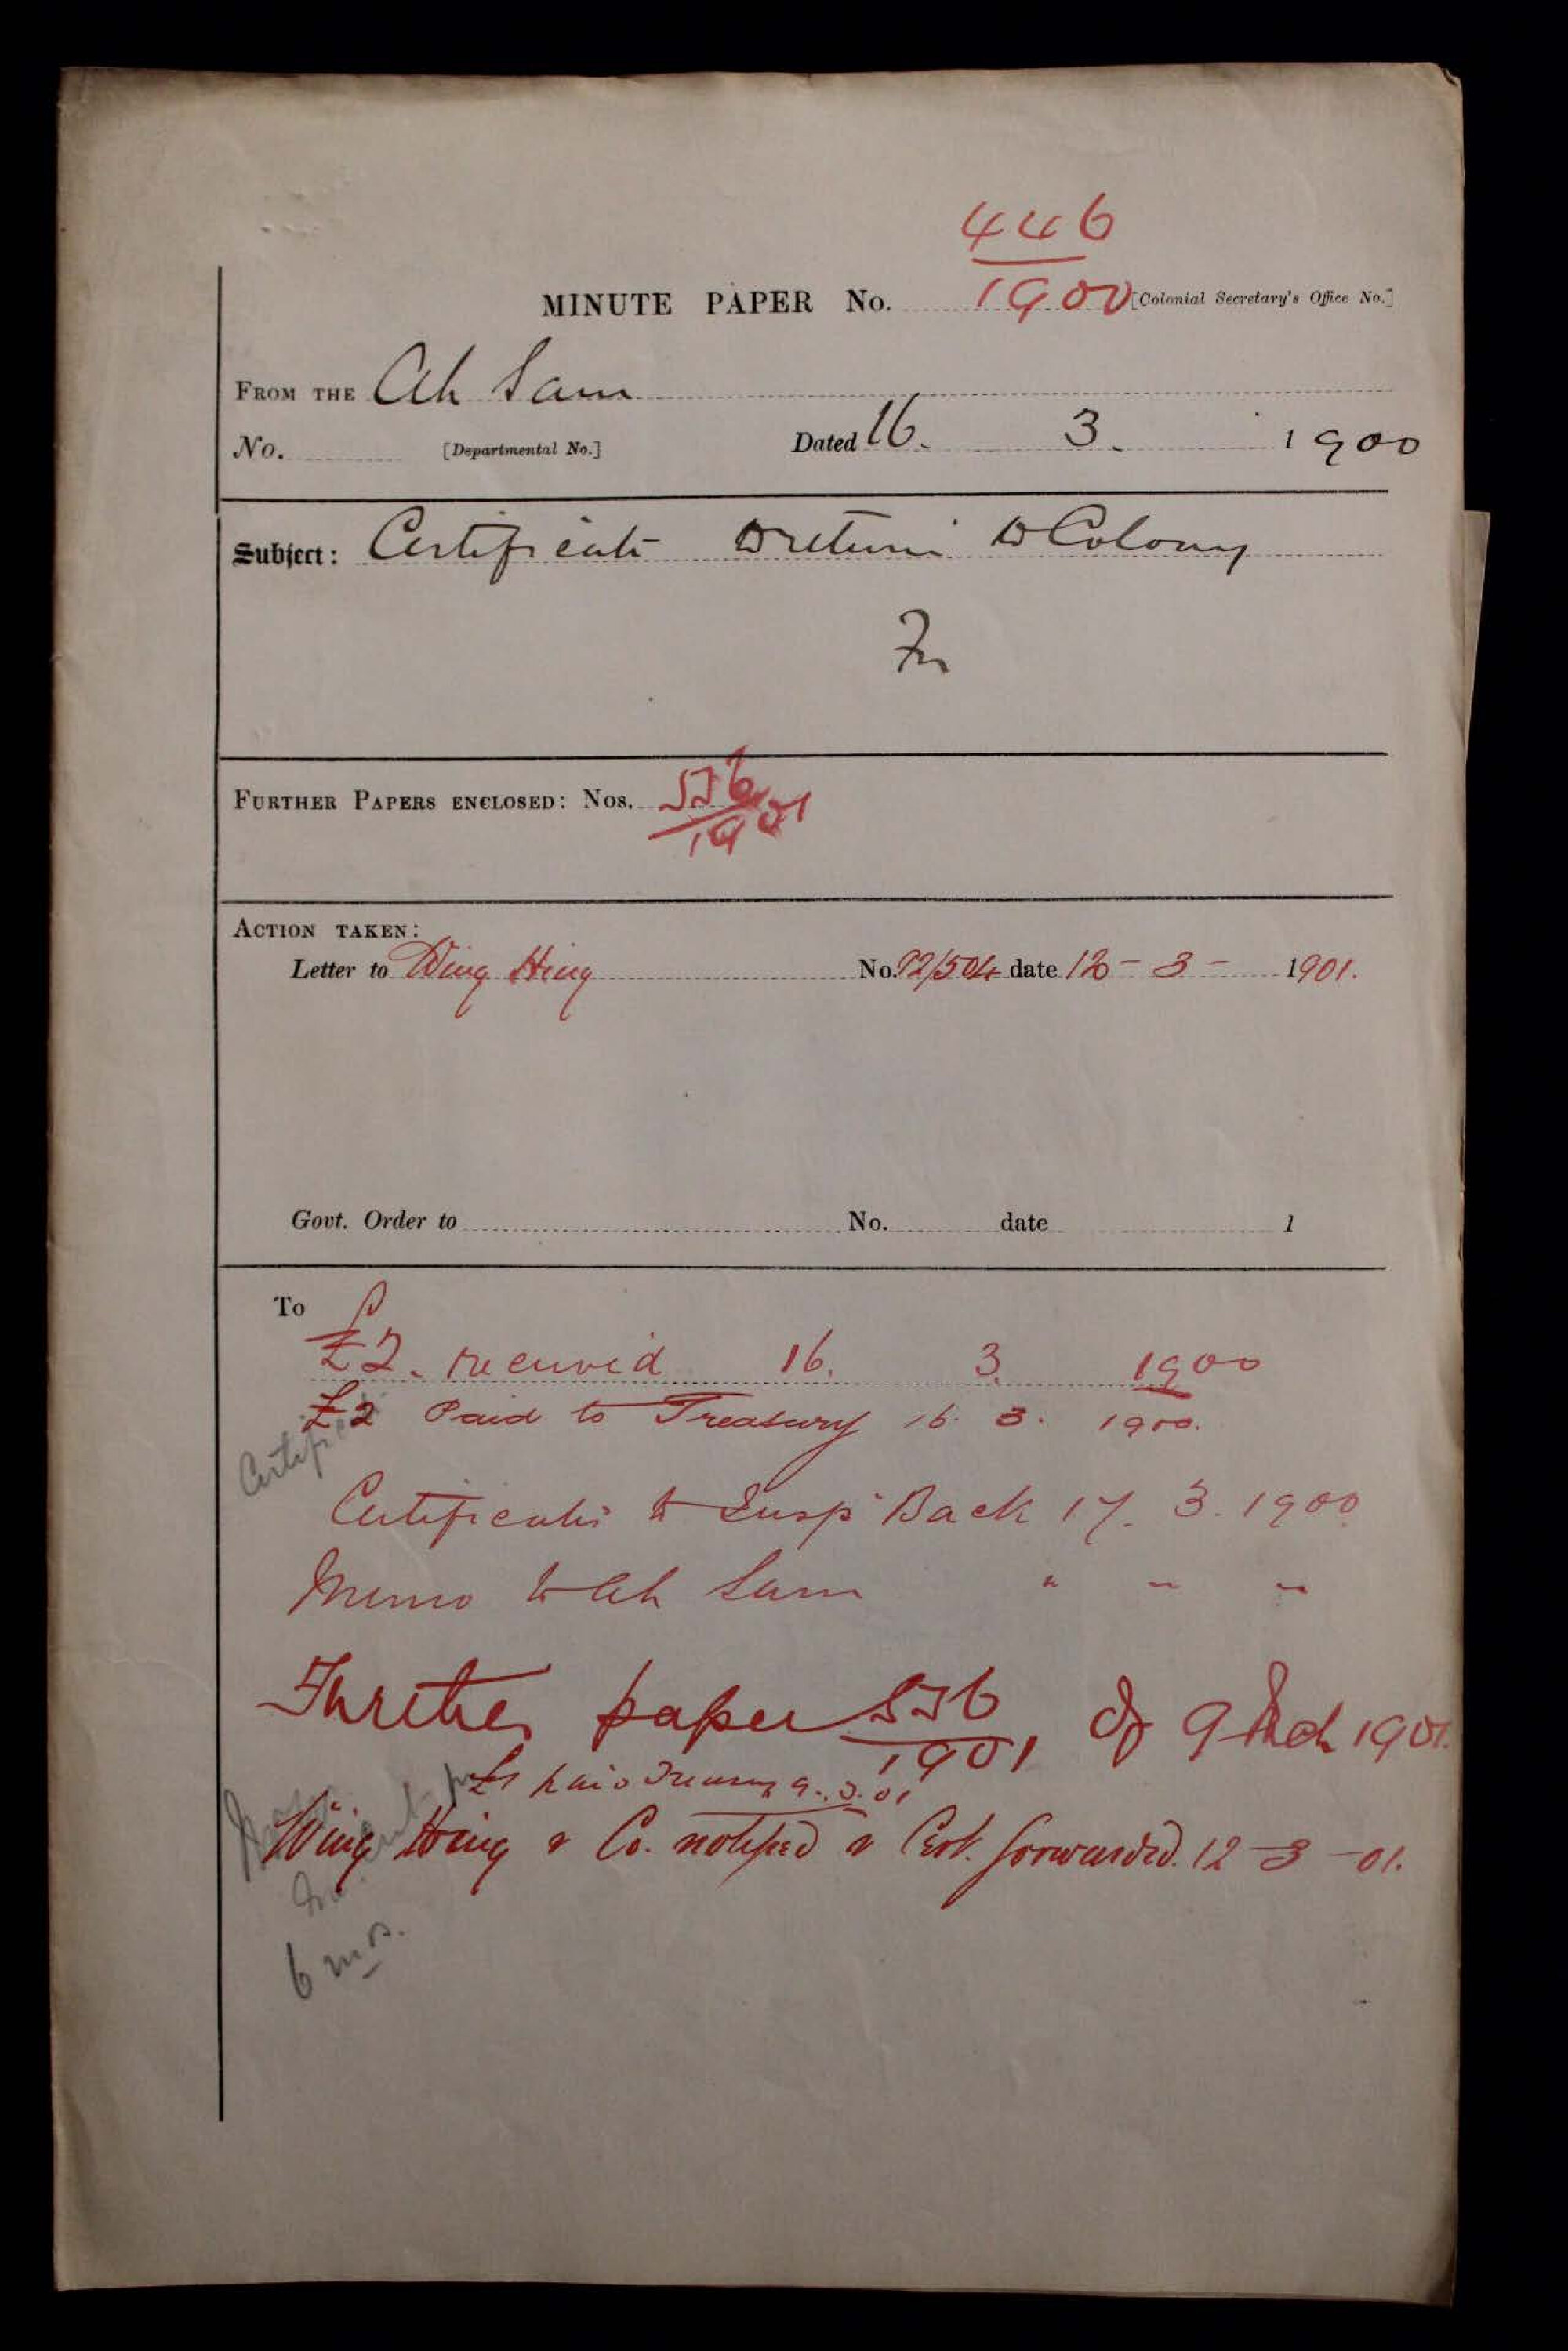 446
MINUTE PAPER No. 1900 [Colonial Secretary's Office No.]
FROM THE Ah Sam
No. [Departmental No.] Dated 16. 3. 1900
Subject: Certificate to return to Colony
FURTHER PAPERS ENCLOSED: Nos. 556
1901
ACTION TAKEN:
Letter to Wing Hing No. 92/504 date 12 - 3 - 1901.
Govt. Order to No. date 1
To
£2. received 16. 3. 1900
£2 Paid to Treasury 16. 3. 1900.
Certificate
Certificate to Insp Back 17. 3. 1900
Memo to Ah Sam " " "
Further paper 556 of 9 Mch 1901.
1901
£1 paid Treasury 9.3.01
Wing Hing & Co. notified & Cert. forwarded. 12-3-01.
6 ms.